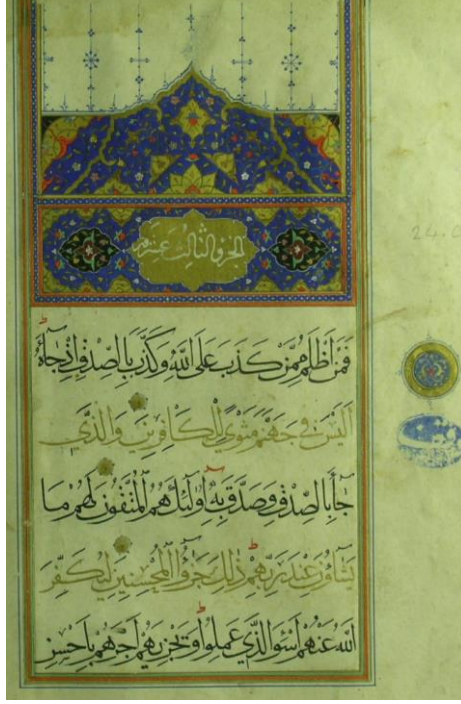 الجزو الثالث عشر
فَمَنْ أَظْلَمُ مِمَّنْ كَذَبَ عَلَى اللَّهِ وَكَذَّبَ بِالصِّدْقِ إِذْ جَاءَهُ
أَلَيْسَ فِي جَهَنَّمَ مَثْوًى لِلْكَافِرِينَ وَالَّذِي
جَاءَ بِالصِّدْقِ وَصَدَّقَ بِهِ أُولَئِكَ هُمُ الْمُتَّقُونَ لَهُمْ مَا
يَشَاؤُنَ عِنْدَ رَبِّهِمْ ذَلِكَ جَزَؤُا الْمُحْسِنِينَ لِيُكَفِّرَ
اللَّهُ عَنْهُمْ أَسْوَأَ الَّذِي عَمِلُوا وَيَجْزِيَهُمْ أَجْرَهُمْ بِأَحْسَنِ